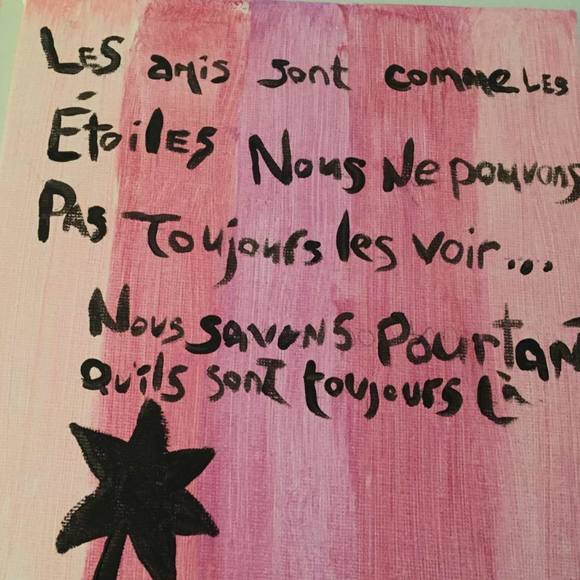 LES amis sont comme LES
ÉtoiLES Nous Ne pouvons
PAS Toujours les voir...
Nous SAVONS Pourtant
Qu'ils sont toujours là